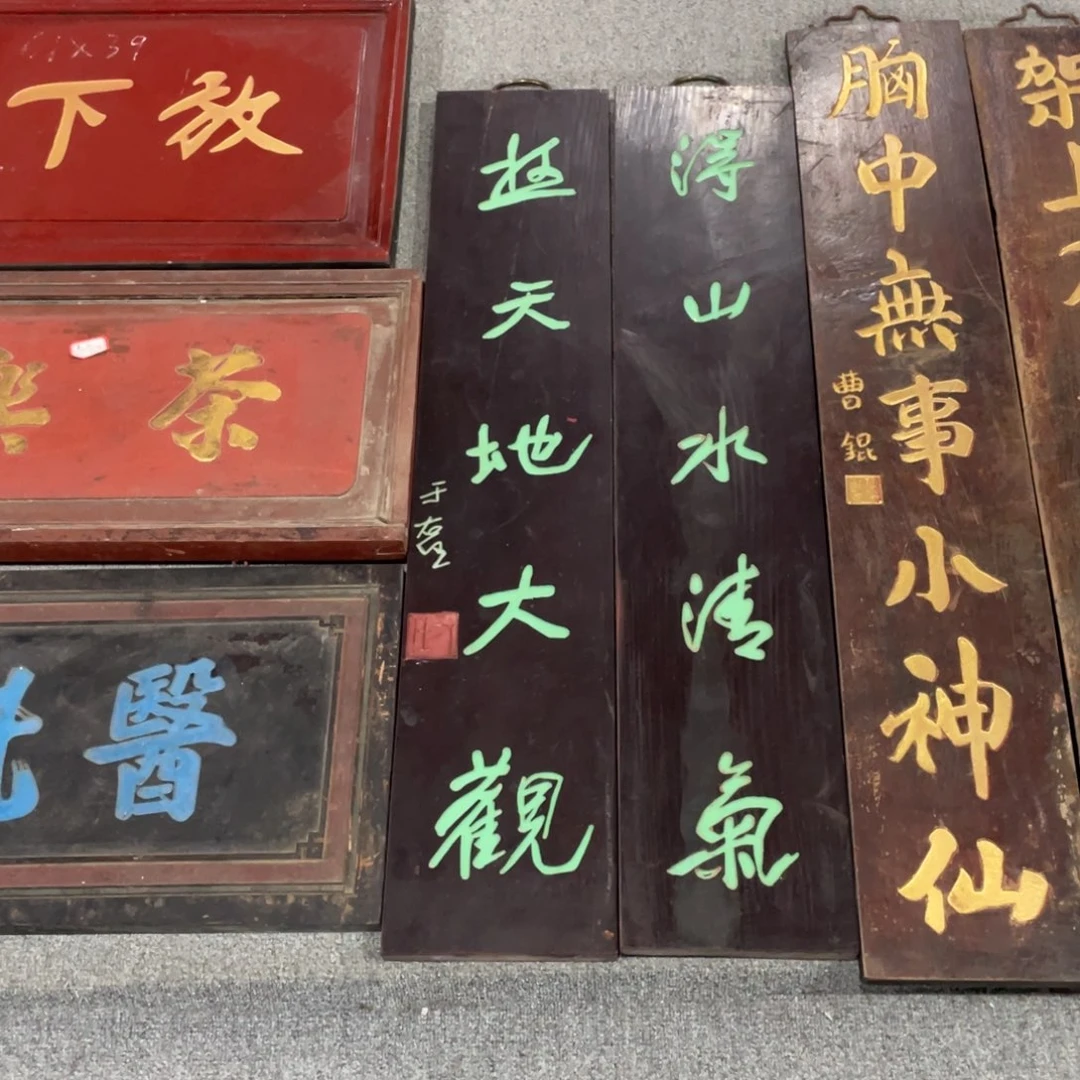 61X39
放下
茶
醫
得山水清氣
極天地大觀
于右任
架上
胸中無事小神仙
曹錕